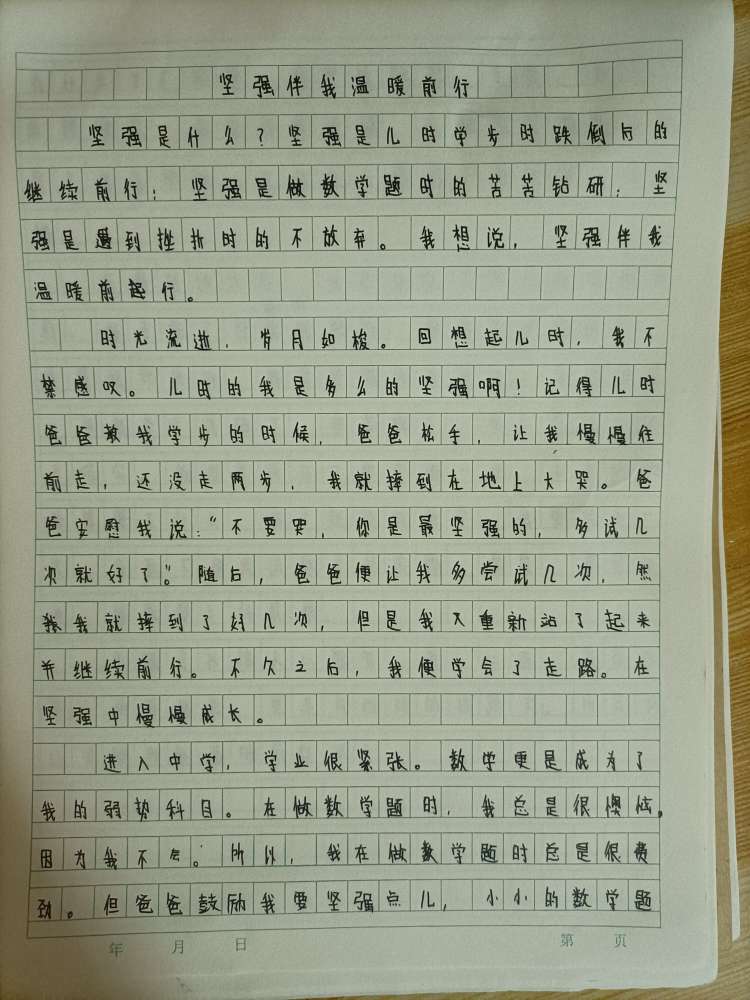 坚强伴我温暖前行
坚强是什么?坚强是儿时学步时跌倒后的
继续前行;坚强是做数学题时的苦苦钻研;坚
强是遇到挫折时的不放弃。我想说,坚强伴我
温暖前起行。
时光流逝,岁月如梭。回想起儿时,我不
禁感叹。儿时的我是多么的坚强啊!记得儿时
爸爸教我学步的时候,爸爸松手,让我慢慢往
前走,还没走两步,我就摔到在地上大哭。爸
爸安慰我说:“不要哭,你是最坚强的,多试几
次就好了”。随后,爸爸便让我多尝试几次,然
我就摔到了好几次,但是我又重新站了起来
并继续前行。不久之后,我便学会了走路。在
坚强中慢慢成长。
进入中学,学业很紧张。数学更是成为了
我的弱势科目。在做数学题时,我总是很懊恼,
因为我不会。所以,我在做数学题时总是很费
劲。但爸爸鼓励我要坚强点儿,小小的数学题
年 月 日
第 页